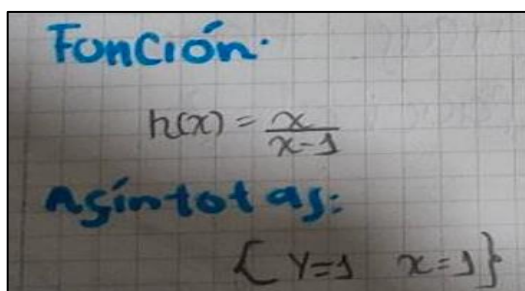 Función.
h(x) = x/x-1
Asíntotas:
{ y=1 x=1 }